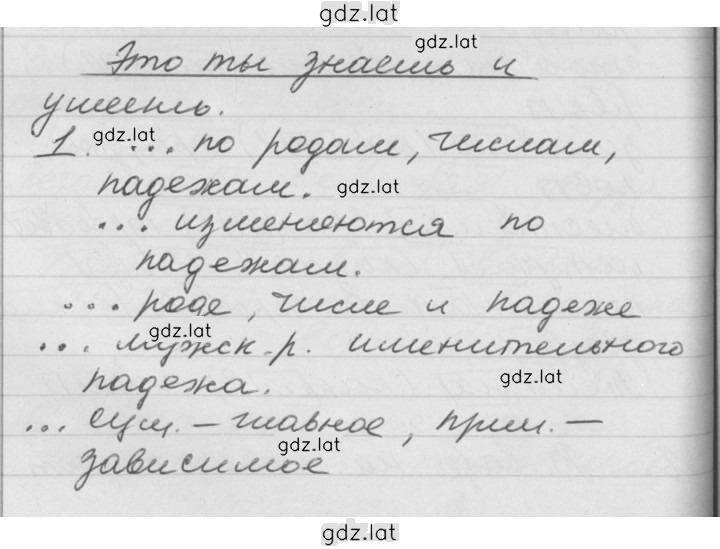 gdz.lat
gdz.lat
Это ты знаешь и
умеешь.
gdz.lat
1. ... по родам, числам,
падежам.
gdz.lat
... изменяются по
падежам.
... роде, числе и падеже
gdz.lat
... мужск. р. именительного
падежа.
gdz.lat
... сущ. – главное, прил. –
gdz.lat
зависимое
gdz.lat